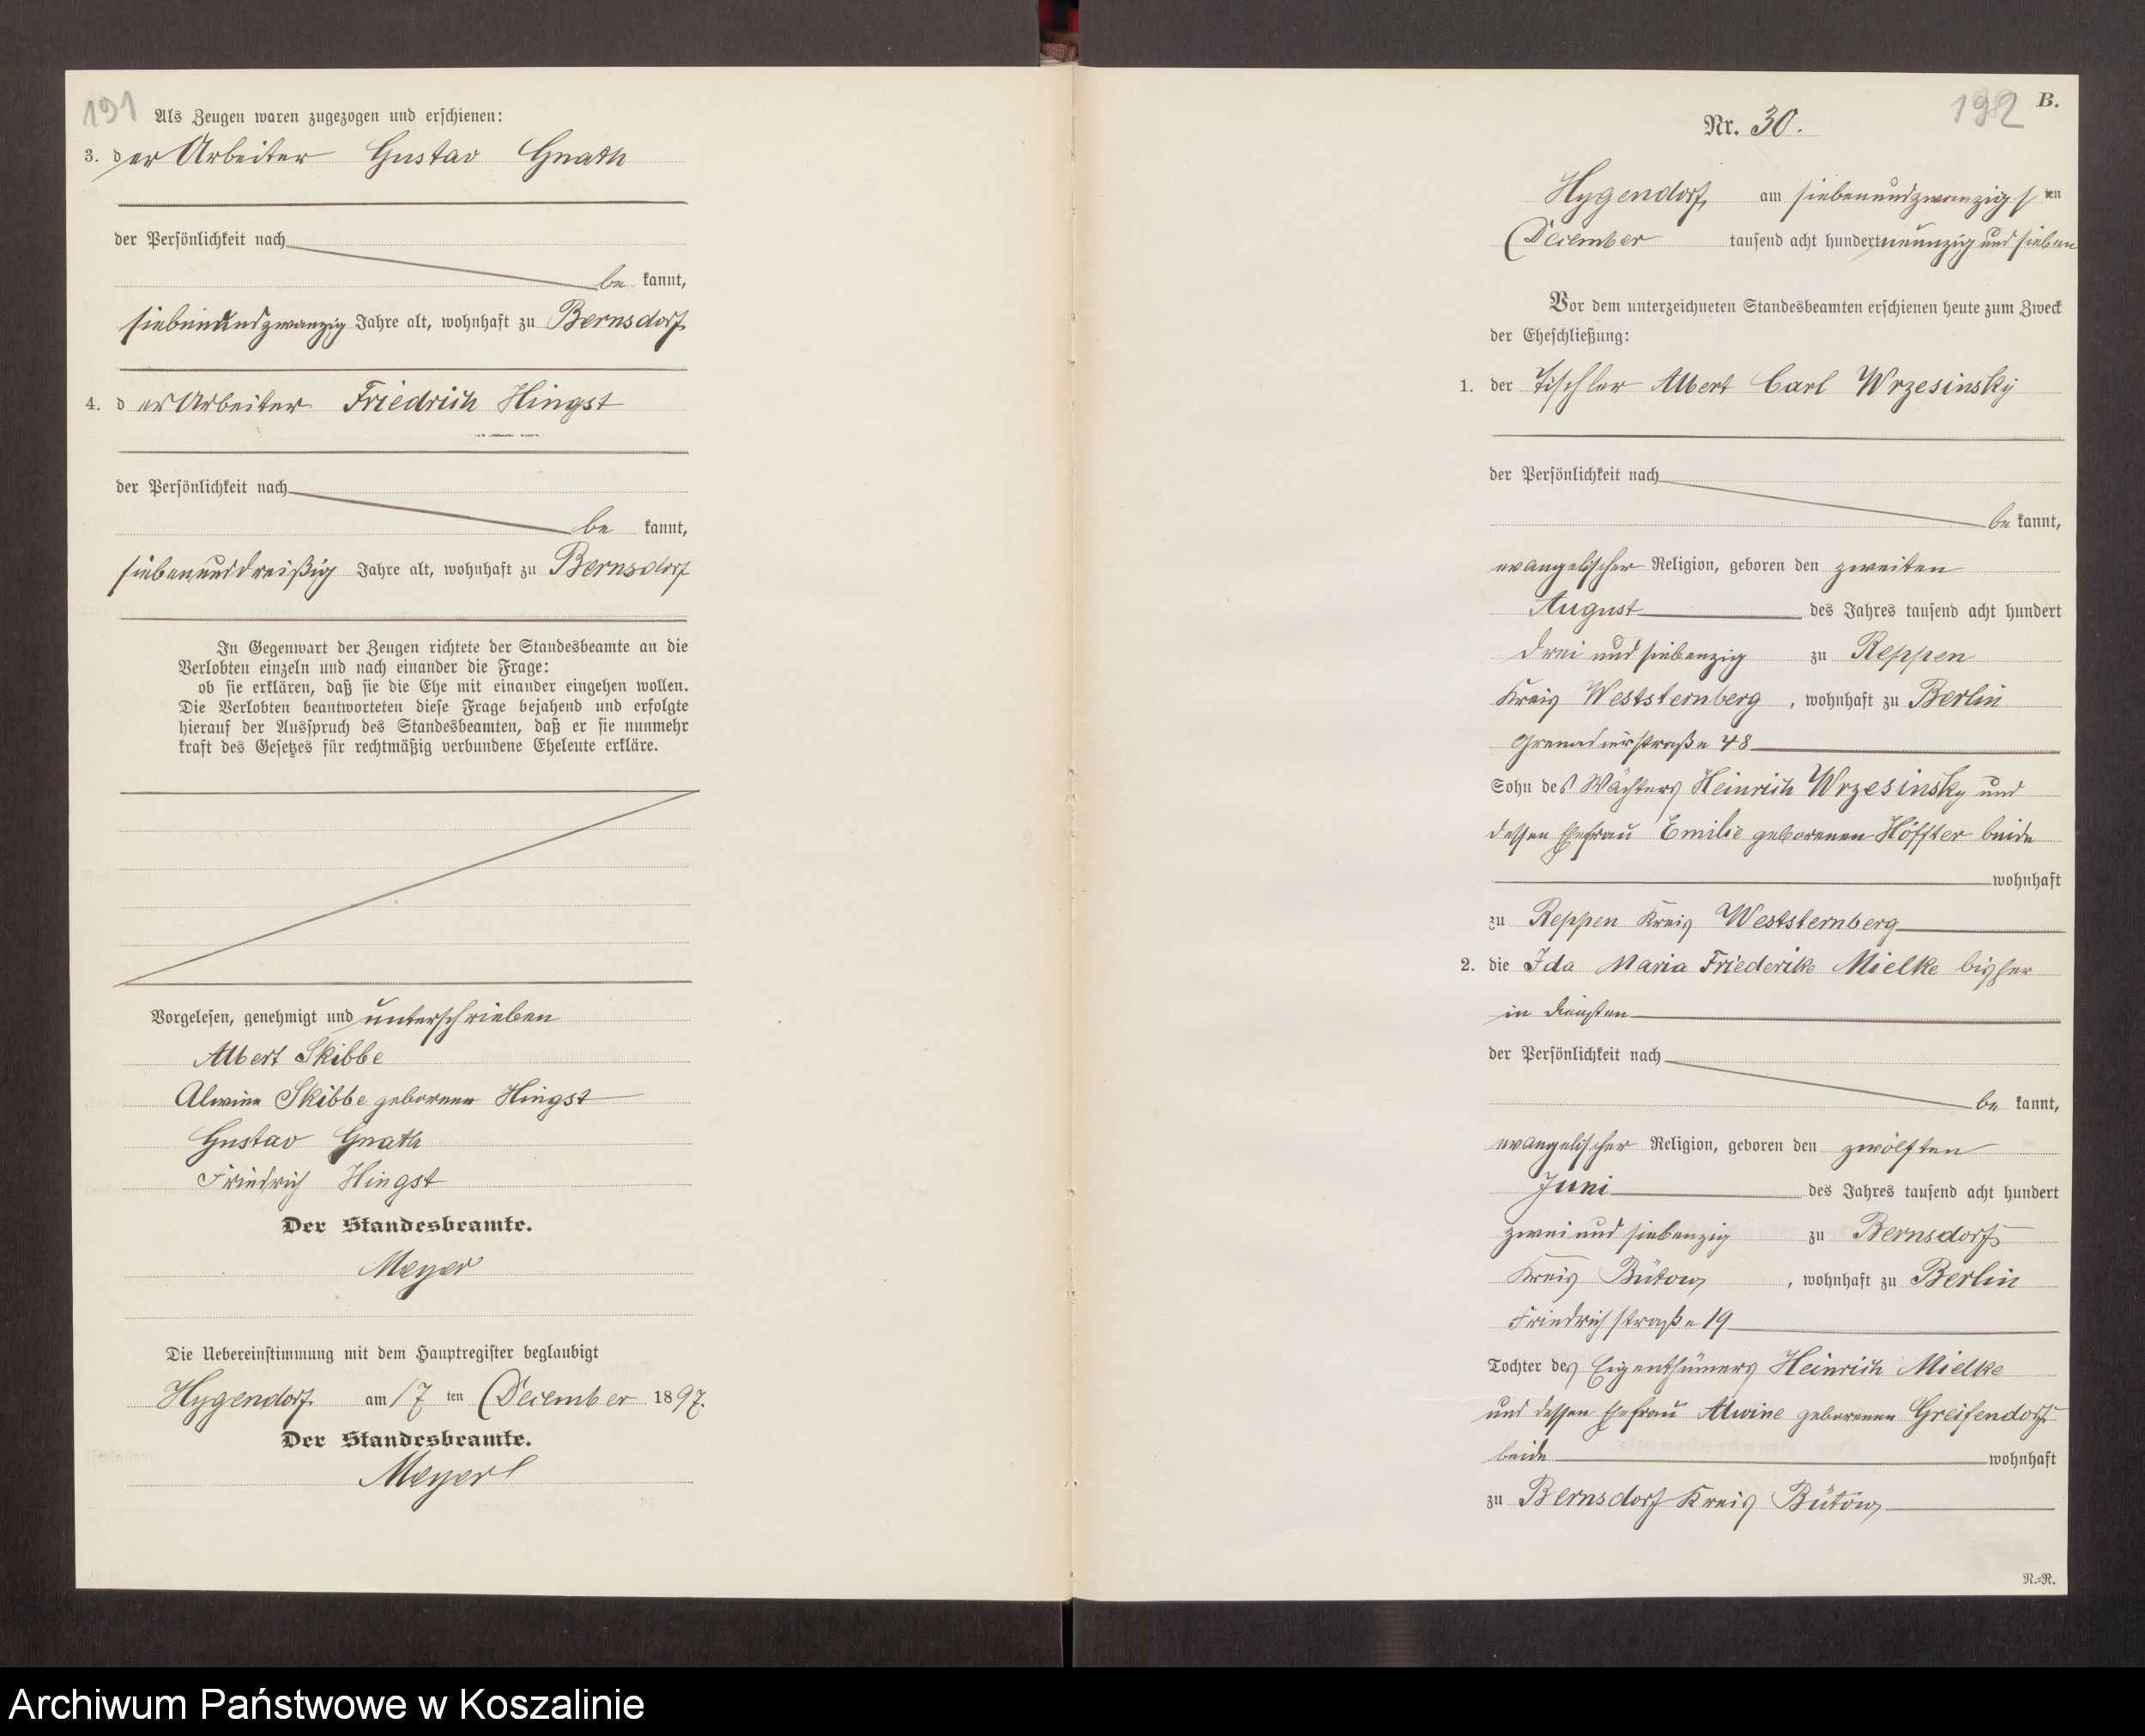 191
Als Zeugen waren zugezogen und erschienen:
3. der Arbeiter Gustav Gnath
der Persönlichkeit nach
be kannt,
siebenundzwanzig Jahre alt, wohnhaft zu Bernsdorf
4. der Arbeiter Friedrich Hingst
der Persönlichkeit nach
be kannt,
siebenunddreißig Jahre alt, wohnhaft zu Bernsdorf
In Gegenwart der Zeugen richtete der Standesbeamte an die
Verlobten einzeln und nach einander die Frage:
ob sie erklären, daß sie die Ehe mit einander eingehen wollen.
Die Verlobten beantworteten diese Frage bejahend und erfolgte
hierauf der Ausspruch des Standesbeamten, daß er sie nunmehr
kraft des Gesetzes für rechtmäßig verbundene Eheleute erkläre.
Vorgelesen, genehmigt und unterschrieben
Albert Skibbe
Alwine Skibbe geborene Hingst
Gustav Gnath
Friedrich Hingst
Der Standesbeamte.
Meyer
Die Uebereinstimmung mit dem Hauptregister beglaubigt
Hygendorf am 17 ten December 1897.
Der Standesbeamte.
Meyer
192
B.
Nr. 30.
Hygendorf, am siebenundzwanzigsten
December tausend acht hundert neunzig und sieben
Vor dem unterzeichneten Standesbeamten erschienen heute zum Zweck
der Eheschließung:
1. der Tischler Albert Carl Wrzesinsky
der Persönlichkeit nach
be kannt,
evangelischer Religion, geboren den zweiten
August des Jahres tausend acht hundert
drei und siebenzig zu Reppen
Kreis Weststernberg, wohnhaft zu Berlin
Grenadierstraße 48
Sohn des Wächters Heinrich Wrzesinsky und
dessen Ehefrau Emilie geborenen Höffter beide
wohnhaft
zu Reppen Kreis Weststernberg
2. die Ida Maria Friederike Mielke bisher
in Diensten
der Persönlichkeit nach
be kannt,
evangelischer Religion, geboren den zwölften
Juni des Jahres tausend acht hundert
zwei und siebenzig zu Bernsdorf
Kreis Bütow, wohnhaft zu Berlin
Friedrichstraße 19
Tochter des Eigenthümers Heinrich Mielke
und dessen Ehefrau Alwine geborenen Greifendorf
beide wohnhaft
zu Bernsdorf Kreis Bütow
N.-R.
Archiwum Państwowe w Koszalinie